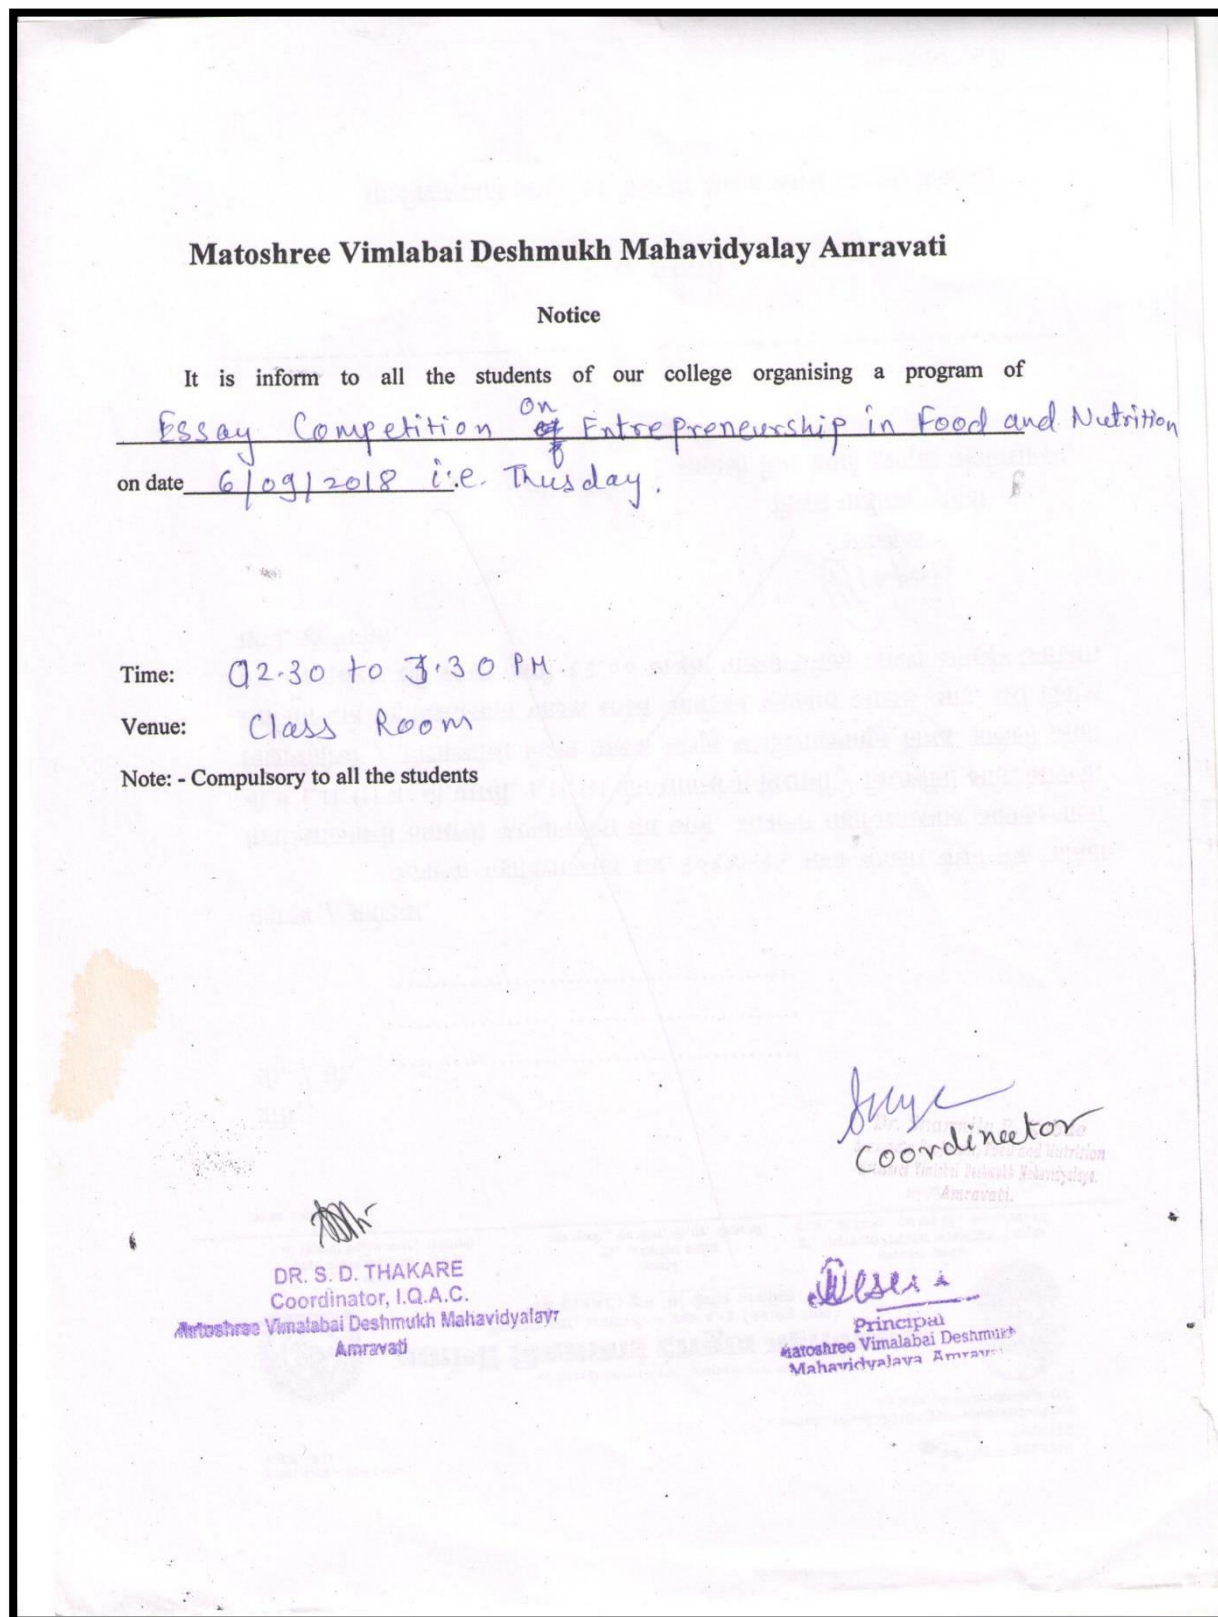 Matoshree Vimlabai Deshmukh Mahavidyalay Amravati
Notice
It is inform to all the students of our college organising a program of
Essay Competition On Entrepreneurship in Food and Nutrition
on date 6/09/2018 i.e. Thusday.
Time: 02.30 to 3.30 PM
Venue: Class Room
Note: - Compulsory to all the students
Coordinector
and Nutrition
Amravati.
DR. S. D. THAKARE
Coordinator, I.Q.A.C.
Vimalabai Deshmukh Mahavidyalayr
Amravati
Principal
Matoshree Vimalabai Deshmukh
Mahavidyalaya Amrav